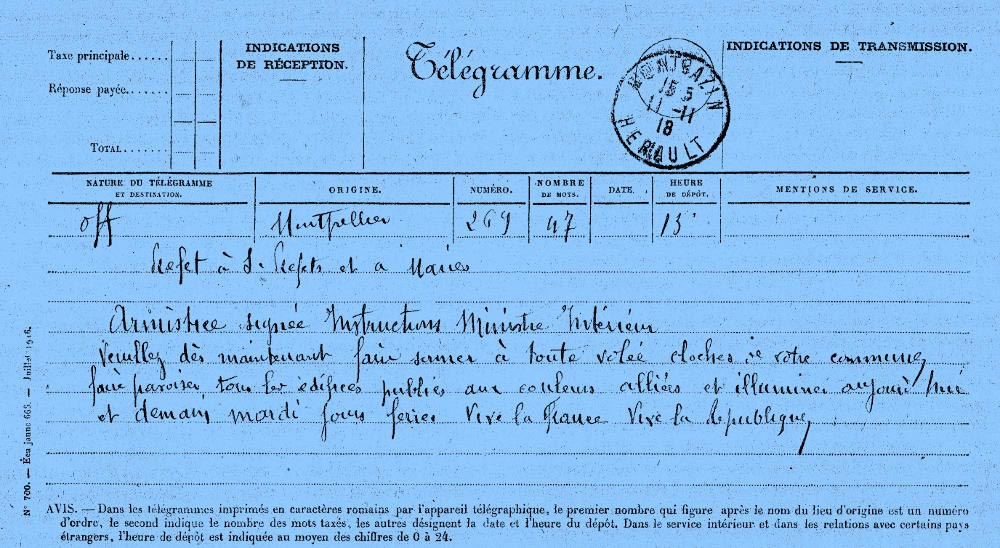 Taxe principale......
Réponse payée.......
TOTAL.......
INDICATIONS
DE RÉCEPTION.
Télégramme.
MONTBAZIN
15 5
11 -11
18
HERAULT
INDICATIONS DE TRANSMISSION.
NATURE DU TÉLÉGRAMME
ET DESTINATION.
ORIGINE.
NUMÉRO.
NOMBRE
DE MOTS.
DATE.
HEURE
DE DÉPÔT.
MENTIONS DE SERVICE.
off Montpellier 269 47 13
Prefet à S. Prefets et a Maires
Armistice signée Instructions Ministre Intérieur
Veuillez dès maintenant faire sonner à toute volée cloches de votre commune,
faire pavoiser tous les édifices publics aux couleurs alliées et illuminer aujourd'hui
et demain mardi jours feries Vive la France Vive la République
N° 700. — Juillet 1916.
AVIS. — Dans les télégrammes imprimés en caractères romains par l'appareil télégraphique, le premier nombre qui figure après le nom du lieu d'origine est un numéro
d'ordre, le second indique le nombre des mots taxés, les autres désignent la date et l'heure du dépôt. Dans le service intérieur et dans les relations avec certains pays
étrangers, l'heure de dépôt est indiquée au moyen des chiffres de 0 à 24.